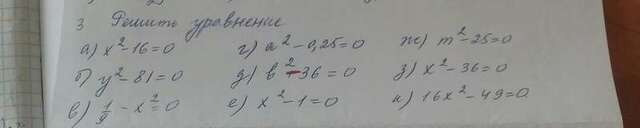 3 Решить уравнение
а) x²-16=0 г) a²-0,25=0 ж) m²-25=0
б) y²-81=0 д) b²-36=0 з) x²-36=0
в) 1/9-x²=0 е) x²-1=0 и) 16x²-49=0